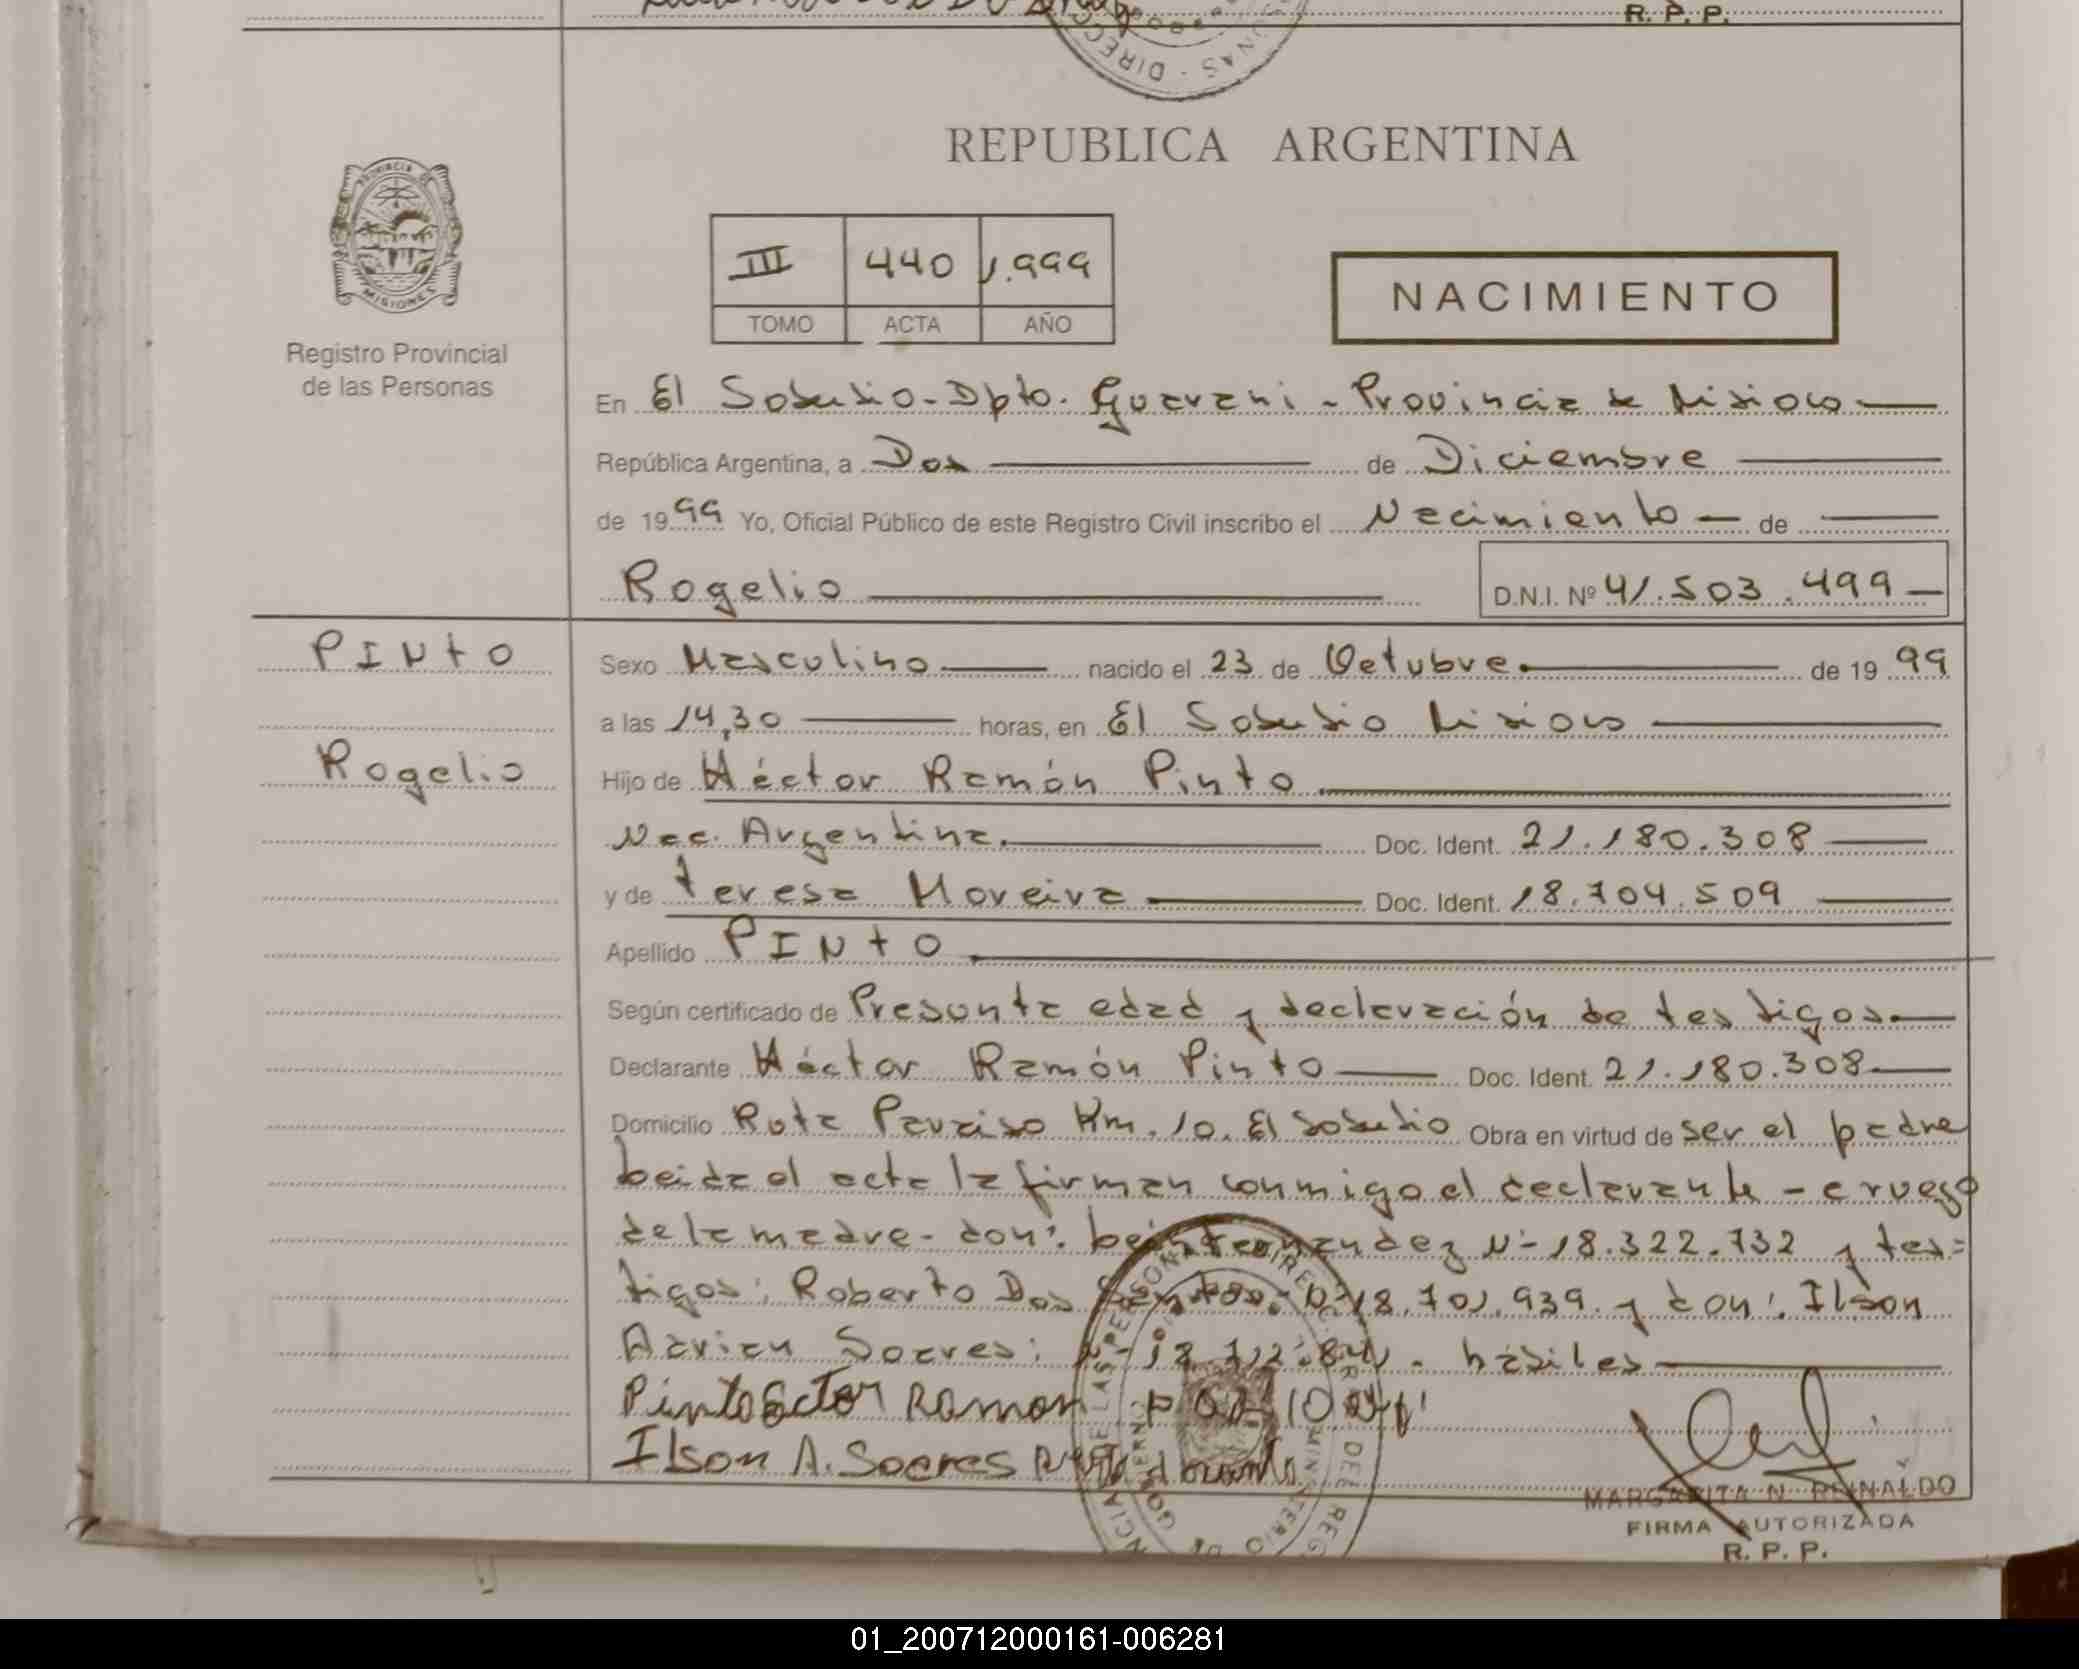 R. P. P.
DIREC
REPUBLICA ARGENTINA
PROVINCIA DE
MISIONES
III 440 1.999
TOMO ACTA AÑO
NACIMIENTO
Registro Provincial
de las Personas
En El Soberbio - Dpto. Guarani - Provincia de Misiones
República Argentina, a Dos de Diciembre
de 1999 Yo, Oficial Público de este Registro Civil inscribo el Nacimiento de
Rogelio D.N.I. Nº 41.503.499
PINTO
Rogelio
Sexo Masculino nacido el 23 de Octubre de 19 99
a las 14,30 horas, en El Soberbio Misiones
Hijo de Héctor Ramón Pinto
Nac. Argentina. Doc. Ident. 21.180.308
y de Teresa Moreira Doc. Ident. 18.704.509
Apellido PINTO
Según certificado de Presunta edad y declaración de testigos
Declarante Héctor Ramón Pinto Doc. Ident. 21.180.308
Domicilio Ruta Paraiso Km. 10. El Soberbio Obra en virtud de ser el padre
Leida el acta la firman conmigo el declarante - a ruego
de la madre - don: N- 18.322.732 y tes=
tigos: Roberto Dos Santos 18.701.939 y don: Ilson
Adrian Soares: hábiles
Pinto Ector Ramon
Ilson A. Soares
MARGARITA N. REINALDO
FIRMA AUTORIZADA
R. P. P.
01_200712000161-006281